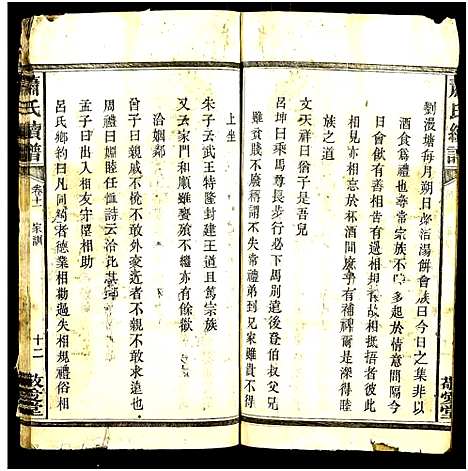 蕭氏續譜
劉漫塘每月朔日必治湯餅會族曰今日之集非以
酒食爲禮也尋常宗族不睦多起於情意間隔今
月必會飲有善相告有過相規有故相抵捂者彼此
相見亦相忘於杯酒間廢幾有補裨爾是深得睦
族之道
文天祥曰猶子是吾兒
呂坤曰乘馬尊長步行必下馬別遠後登伯叔父兄
雖貧賤不廢稱謂不失常禮弟到兄家雖貴不居
上坐
朱子云武王特隆封建王道且篤宗族
又云家門和順雖饔飱不繼亦有餘歡
洽姻鄰
曾子曰親戚不悅不敢外交近者不親不敢求遠也
周禮曰婣睦任恤詩云洽比其鄰
孟子曰鄉人相友守望相助
呂氏鄉約曰凡同約者德業相勸過失相規禮俗相
蕭氏續譜
卷十一
家訓
十二
敬愛堂
敬愛堂